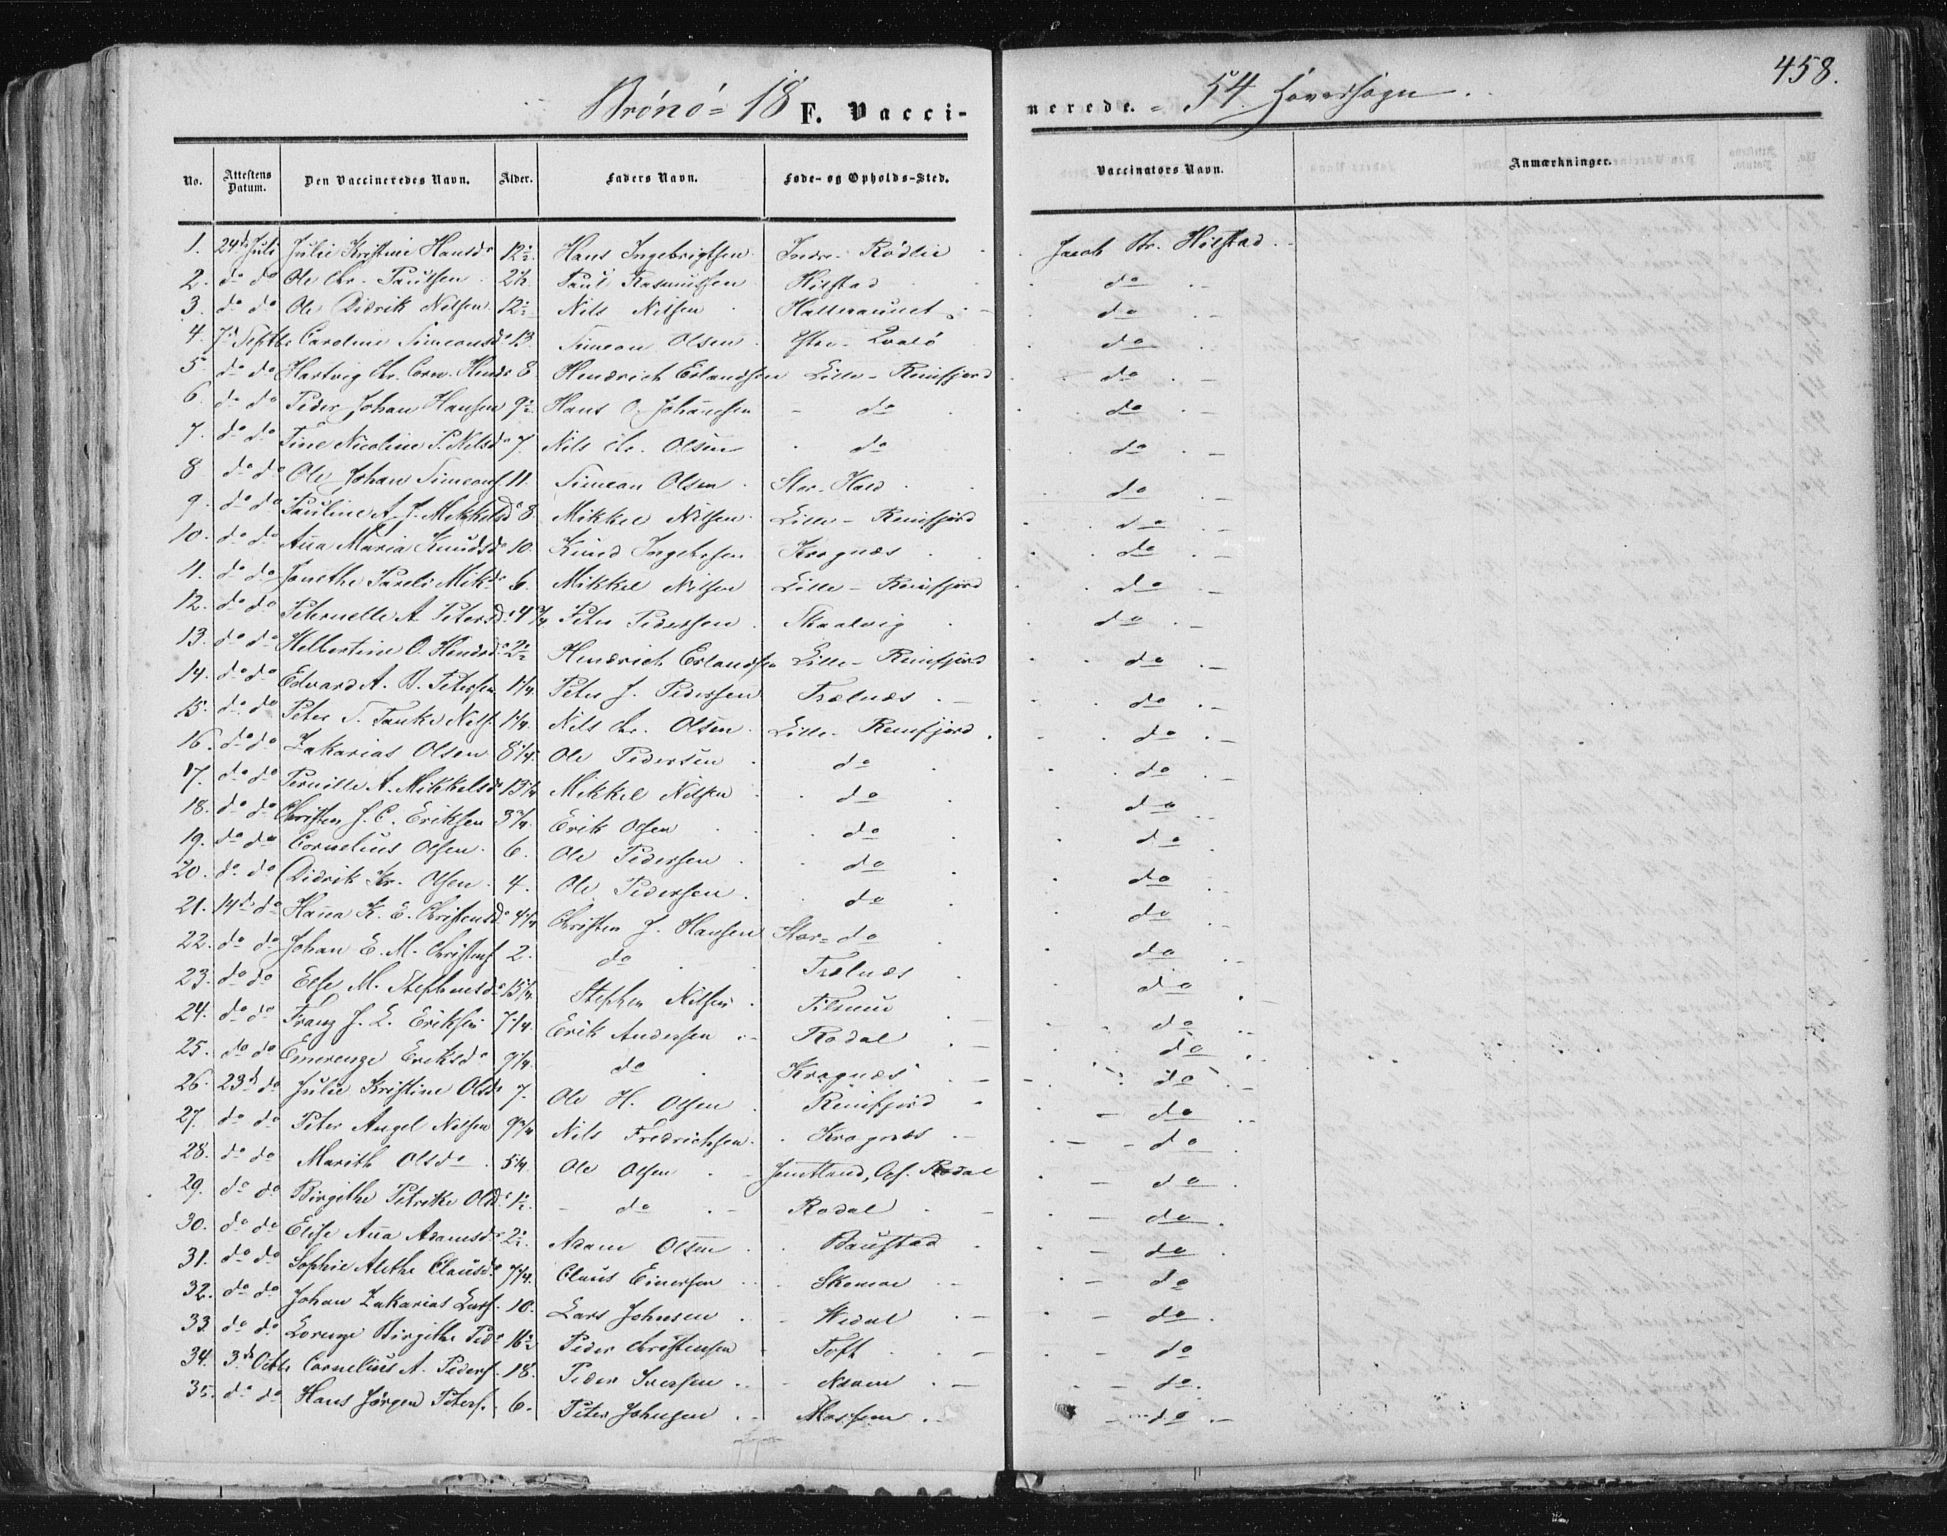 458.
Brönö = 18 F. Vacci-nerede. = 54 Hovedsogn.
No. Attestens Datum. Den Vaccineredes Navn. Alder. Faders Navn. Føde- og Opholds-Sted. Vaccinators Navn. Anmærkninger.
1. 24de Juli Julie Kristine Hansdr 12 1/2 Hans Ingebrigtsen Indre Rödlie Jacob Kr. Hilstad
2. do do Ole Chr. Paulsen Paul Rasmussen Hilstad do
3. do do Ole Didrik Nilsen 12 1/2 Nils Nilsen do
4. 7de Septbr Caroline Simeonsdr 13 Simeon Olsen do
5. do do Hartvig Chr. Corn. Hends 8 Hendrich Erlandsen Lille-Reinfjord do
6. do do Peder Johan Hansen 9 1/2 Hans O. Johansen do do
7. do do Tine Nicoline P. Nilsdr 7. Nils Chr. Olsen do do
8 do do Ole Johan Simeons 11. Simeon Olsen Stor- do
9. do do Pauline A. J. Mikkelsdr 8 Mikkel Nilsen Lille-Reinfjord do
10. do do Anna Maria Knudsdr 10. Knud Ingebrsen Kragnæs do
11. do do Jonethe Pareli Mikdr 6. Mikkel Nilsen Lille-Reinfjord do
12. do do Peternelle A. Petersdr 4 3/4 Peter Pedersen Skaalvig do
13. do do Helbertine O. Hendsdr 2 1/2 Hendrich Erlandsen Lille-Reinfjord do
14. do do Edvard A. B. Petersen 1 1/4 Peter J. Pedersen Trælnæs do
15. do do Peter S. Tanke Nils. 1 1/4 Nils Chr. Olsen Lille-Reinfjord do
16. do do Zakarias Olsen 8 1/4 Ole Pedersen do do
17. do do Pernille A. Mikkelsdr 13 1/4 Mikkel Nilsen do do
18. do do Christen J. C. Eriksen 3 3/4 Erik Olsen do do
19. do do Cornelius Olsen 6. Ole Pedersen do do
20. do do Didrik Kr. Olsen 4. Ole Pedersen do do
21. 14de do Hanna K. E. Christensdr 4 1/4 Christen J. Hansen Stor- do do
22. do do Johan E. M. Christens 2. do Trælnæs do
23. do do Else M. Stephensdr 13 1/4 Stephen Nilsen do
24. do do Franz J. E. Eriksen 7 1/4 Erik Andersen Rodal do
25. do do Emerenze Eriksdr 9 1/4 do Kragnæs do
26. 23de do Julie Kristine Olsdr 7. Ole H. Olsen Reinfjord do
27. do do Peter Angel Nilsen 9 3/4 Nils Fredrichsen Kragnæs do
28. do do Marith Olsdr 5 1/4. Ole Olsen Jemtland, Ops. Rodal do
29. do do Birgithe Petrikke Olsdr 1 1/2 do Rodal do
30. do do Elise Anna Adamsdr 2 1/2 Adam Olsen Baustad do
31. do do Sophie Alethe Clausdr 7 1/4. Claus Einersen Skomo do
32. do do Johan Zakarias Lars. 10. Lars Johnsen Hidal do
33. do do Lorenze Birgithe Pedr 16 1/2 Peder Christensen Toft do
34. 3de Octbr Cornelius A. Peders. 18. Peder Iversen do
35. do do Hans Jørgen Peters. 6. Peter Johnsen Mosheim do